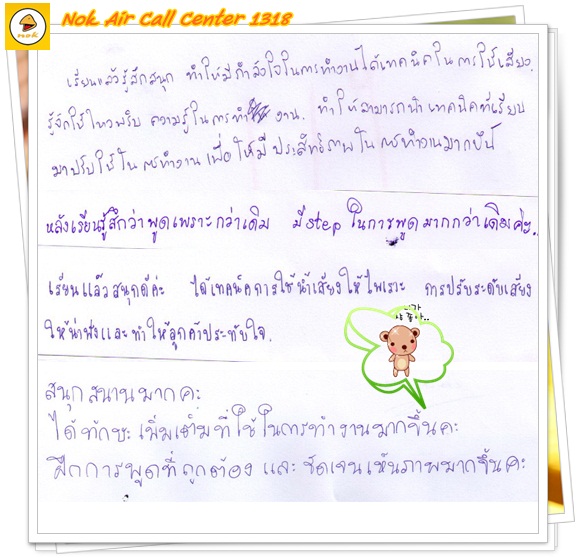 Nok Air Call Center 1318
เรียนแล้วรู้สึกสนุก ทำให้มีกำลังใจในการทำงานได้เทคนิคในการใช้เสียง.
รู้จักใช้ไหวพริบ ความรู้ในการทำ งาน. ทำให้สามารถนำเทคนิคที่เรียน
มาปรับใช้ในการทำงานเพื่อให้มีประสิทธิภาพในการทำงานมากยิ่งขึ้น
หลังเรียนรู้สึกว่าพูดเพราะกว่าเดิม มี step ในการพูดมากกว่าเดิมค่ะ..
เรียนแล้วสนุกดีค่ะ ได้เทคนิคการใช้น้ำเสียงให้ไพเราะ การปรับระดับเสียง
ให้น่าฟังและทำให้ลูกค้าประทับใจ.
สนุกสนานมากคะ
ได้ทักษะเพิ่มเติมที่ใช้ในการทำงานมากขึ้นคะ
ฝึกการพูดที่ถูกต้อง และ ชัดเจนเห็นภาพมากขึ้นคะ